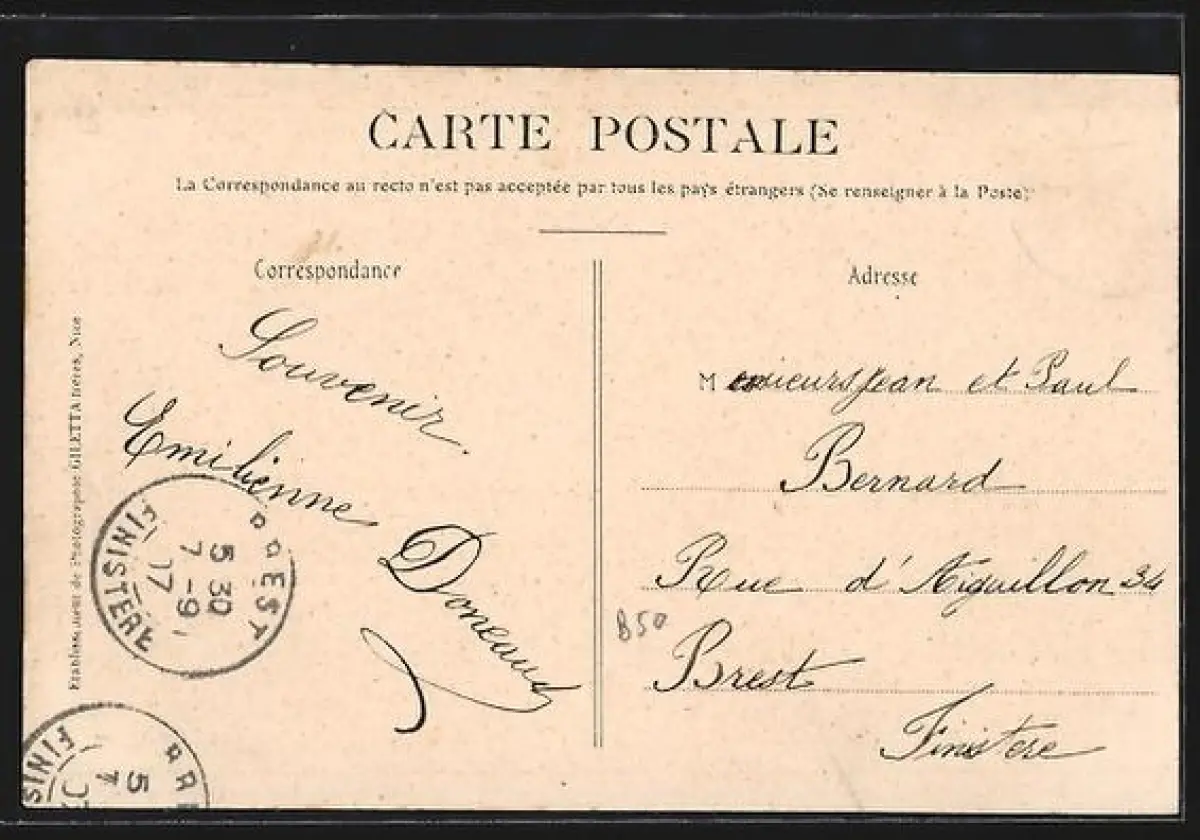 CARTE POSTALE
La Correspondance au recto n'est pas acceptée par tous les pays étrangers (Se renseigner à la Poste)
Correspondance
Souvenir.
Emilienne
Doneaud
Adresse
Messieurs Jean et Paul
Bernard
Rue d'Aiguillon 34
Brest
Finistere
B50
Etablissement de Photographie GILETTA frères, Nice
BREST
5 30
7 -9
07
FINISTERE
BRE
5
7
07
FINIS